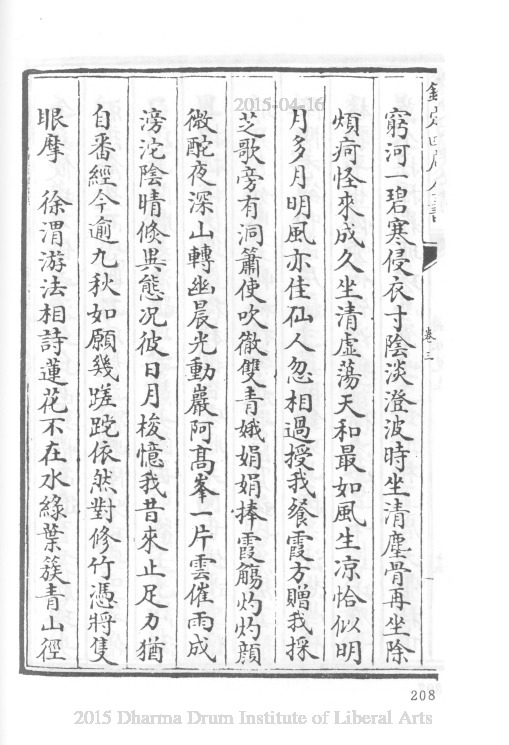 欽定四庫全書
卷三
窮河一碧寒侵衣寸陰淡澄波時坐清塵骨再坐除
煩疴怪來成久坐清虛蕩天和最如風生凉恰似明
月多月明風亦佳仙人忽相過授我餐霞方贈我採
芝歌旁有洞簫使吹徹雙青娥娟娟捧霞觴灼灼顔
微酡夜深山轉幽晨光動巖阿髙峯一片雲催雨成
滂沱陰晴倐異態况彼日月梭憶我昔來止足力猶
自番經今逾九秋如願幾蹉跎依然對修竹憑將隻
眼摩　徐渭游法相詩蓮花不在水綠葉簇青山徑
208
2015-04-16
2015 Dharma Drum Institute of Liberal Arts